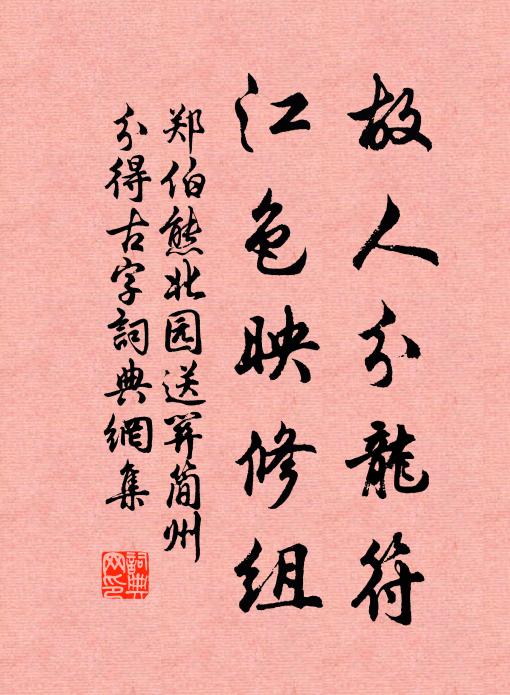 故人分龍符
江色映修组
郑伯熊北园送羿简州
分得古字詞典網集
詞典网印